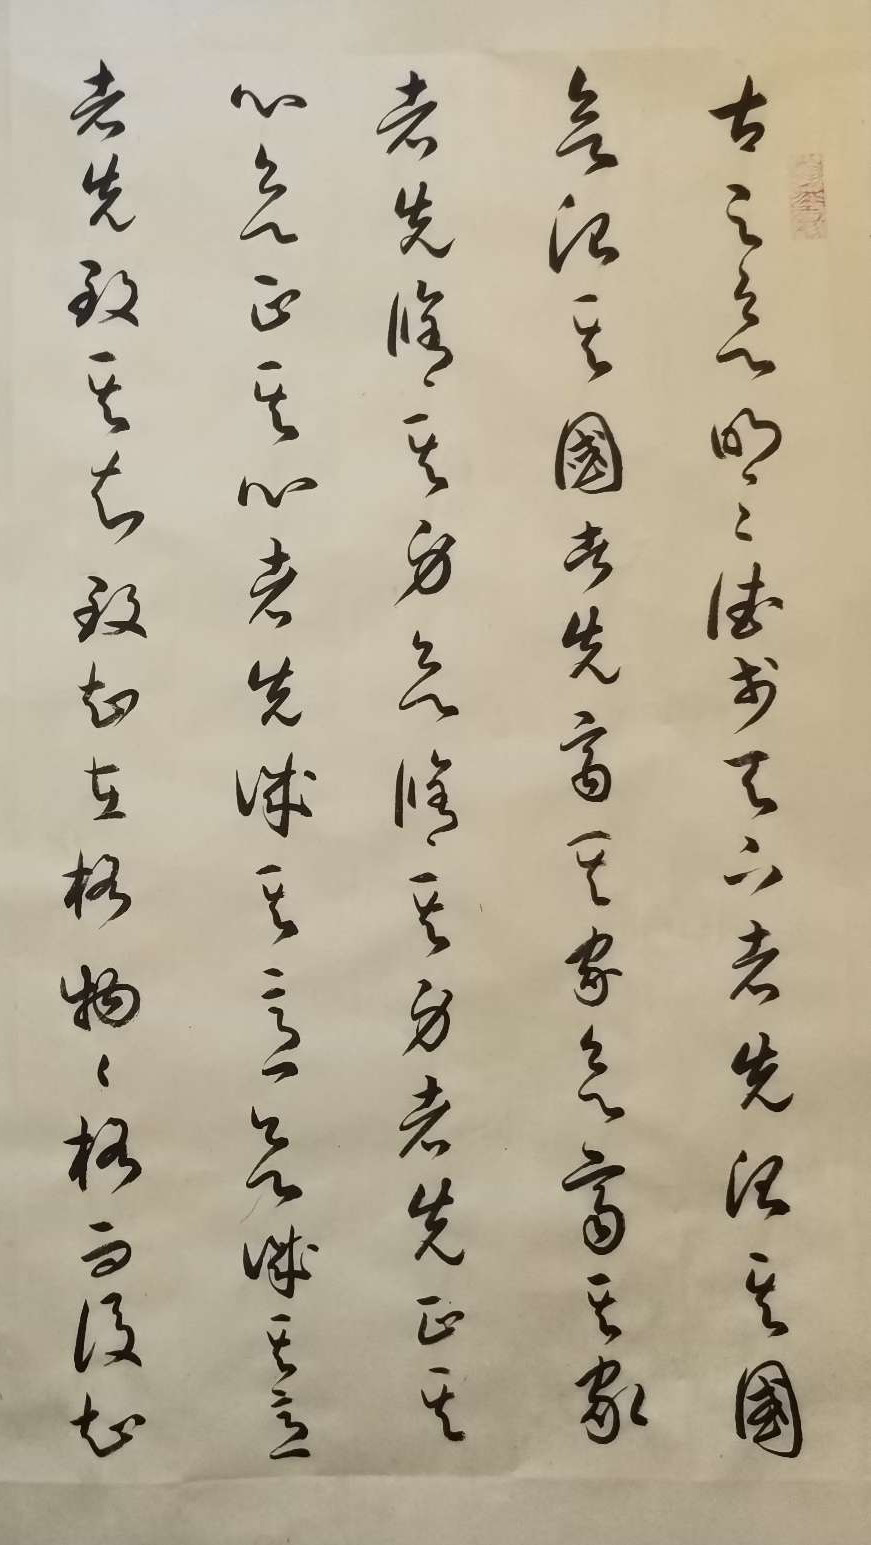 古之欲明〻德於天下者先治其國
欲治其國者先齊其家欲齊其家
者先脩其身欲脩其身者先正其
心欲正其心者先誠其意欲誠其意
者先致其知致知在格物〻格而後知